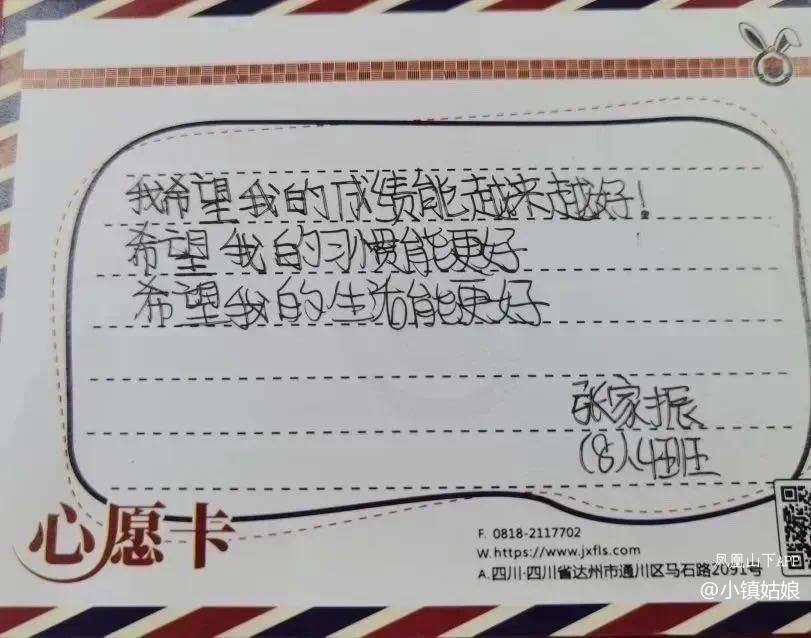 我希望我的成绩能越来越好!
希望我的习惯能更好
希望我的生活能更好
张家振
(8)4班
心愿卡
F. 0818-2117702
W.https://www.jxfls.com
A.四川·四川省达州市通川区马石路2091号
凤凰山下APP
@小镇姑娘